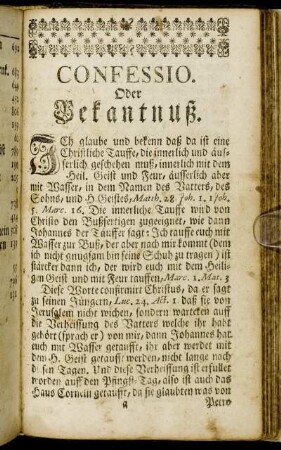 CONFESSIO.
Oder
Bekantnuß.
ICh glaube und bekenn daß da ist eine
Christliche Tauffe, die innerlich und äuß-
serlich geschehen muß, innerlich mit dem
Heil. Geist und Feur, äusserlich aber
mit Wasser, in dem Namen des Vatters, des
Sohns, und H. Geistes, Matth. 28. Joh. 1. 1 Joh.
5. Marc. 16. Die innerliche Tauffe wird von
Christo den Bußfertigen zugeeignet, wie dann
Johannes der Tauffer sagt: Ich tauffe euch mit
Wasser zur Buß, der aber nach mir kommt (dem
ich nicht gnugsam bin seine Schuh zu tragen) ist
stärcker dann ich, der wird euch mit dem Heili-
gen Geist und mit Feur tauffen, Marc. 1. Mat. 3
Diese Worte confirmirt Christus, da er sagt
zu seinen Jüngern, Luc. 24. Act. 1. daß sie von
Jerusalem nicht wichen, sondern warteten auff
die Verheissung des Vatters welche ihr habt
gehört (sprach er) von mir, dann Johannes hat
euch mit Wasser getaufft, ihr aber werdet mit
dem H. Geist getaufft werden, nicht lange nach
diesen Tagen. Und diese Verheissung ist erfüllet
worden auff den Pfingst-Tag, also ist auch das
Haus Cornelii getaufft, da sie glaubten was von
g Petro